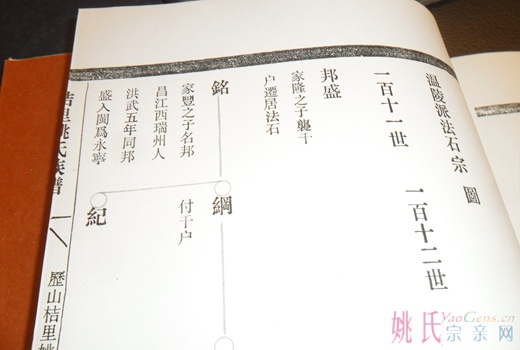 温陵派法石宗圖
一百十一世
一百十二世
邦盛
家隆之子襲千
户遷居法石
銘
家豐之子名邦
昌江西瑞州人
洪武五年同邦
盛入閩爲永寧
綱
付千户
紀
桔里姚氏族譜
一
歷山桔里姚
姚氏宗亲网
YaoGens.cn